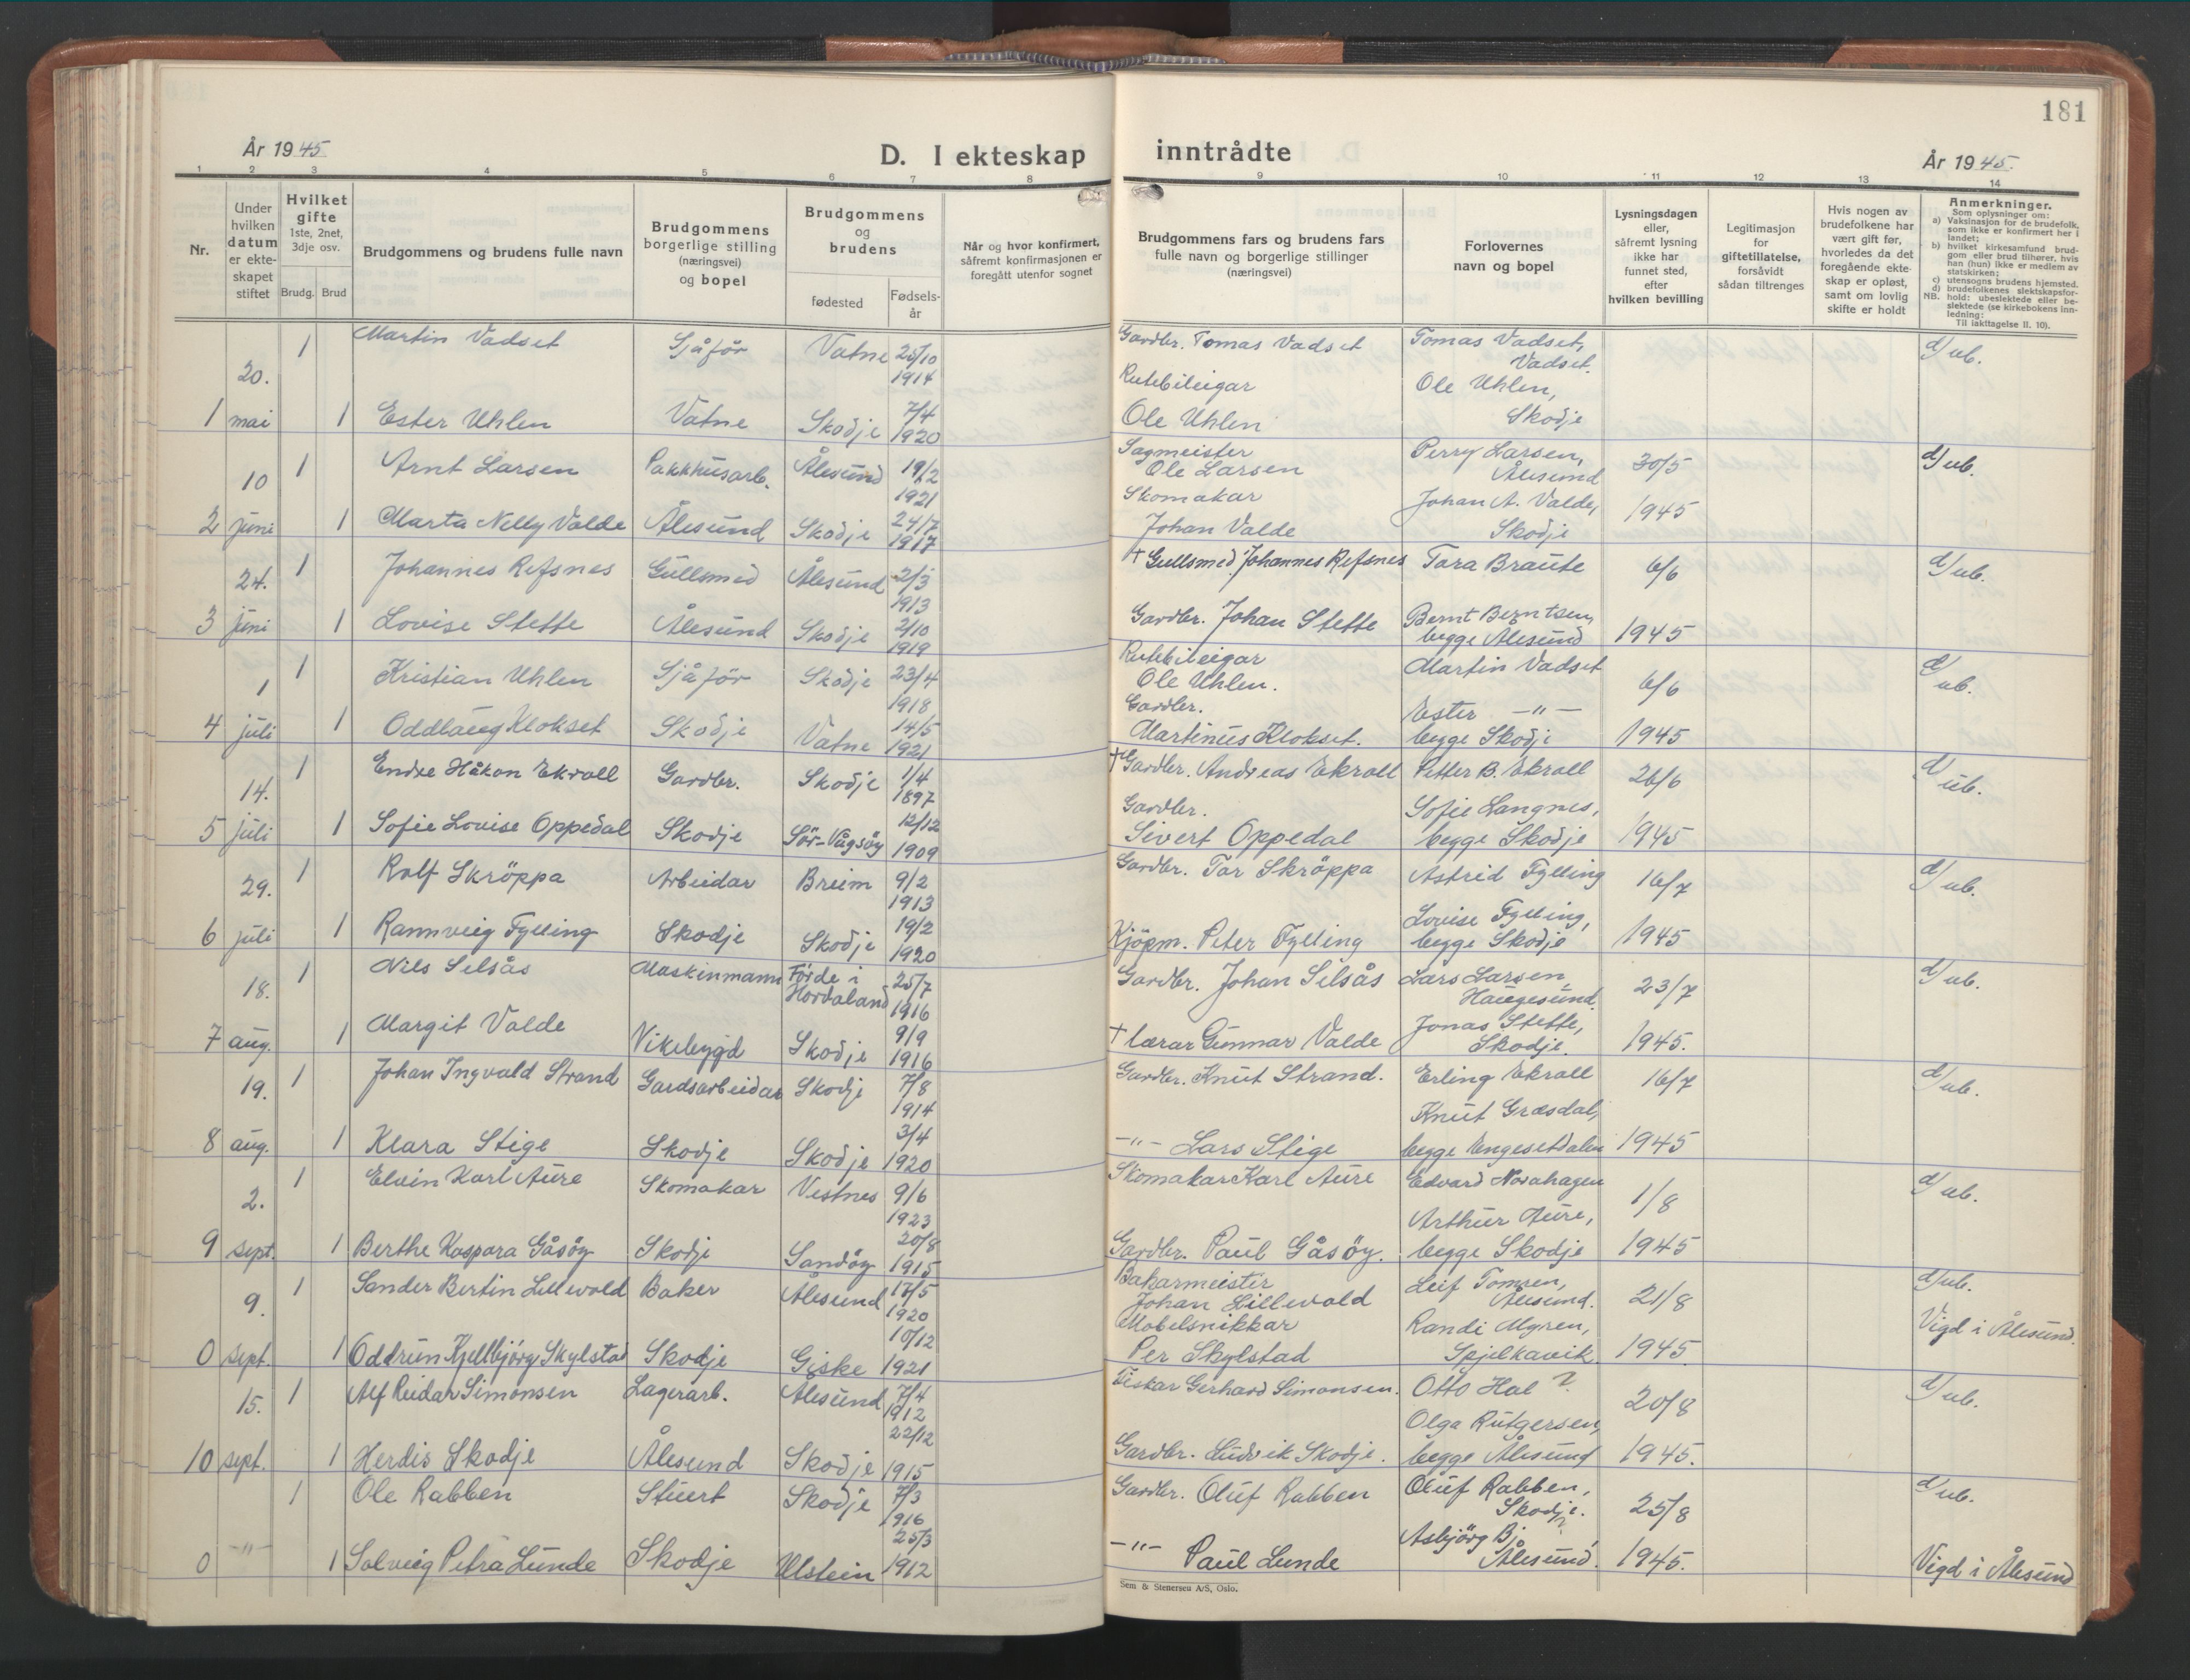 181
År 1945
D. I ekteskap inntrådte
År 1945.
1 2 3 4 5 6 7 8 9 10 11 12 13 14
Nr.
Under hvilken datum er ekteskapet stiftet
Hvilket gifte 1ste, 2net, 3dje osv.
Brudg. Brud
Brudgommens og brudens fulle navn
Brudgommens borgerlige stilling (næringsvei) og bopel
Brudgommens og brudens
fødested
Fødsels-år
Når og hvor konfirmert, såfremt konfirmasjonen er foregått utenfor sognet
Brudgommens fars og brudens fars fulle navn og borgerlige stillinger (næringsvei)
Forlovernes navn og bopel
Lysningsdagen eller, såfremt lysning ikke har funnet sted, efter hvilken bevilling
Legitimasjon for giftetillatelse, forsåvidt sådan tiltrenges
Hvis nogen av brudefolkene har vært gift før, hvorledes da det foregående ekteskap er opløst, samt om lovlig skifte er holdt
Anmerkninger.
Som oplysninger om:
a) Vaksinasjon for de brudefolk, som ikke er konfirmert her i landet;
b) hvilket kirkesamfund brudgom eller brud tilhører, hvis han (hun) ikke er medlem av statskirken;
c) utensogns brudens hjemsted.
d) brudefolkenes slektskapsforhold: ubeslektede eller beslektede (se kirkebokens innledning:
NB.
Til iakttagelse II. 10).
20. 1 Martin Vadset Sjåför Vatne 25/10 1914 Gardbr. Tomas Vadset Tomas Vadset, Vadset. d/ub.
1 mai 1 Ester Uhlen Vatne Skodje 7/4 1920 Rutebileigar Ole Uhlen Ole Uhlen, Skodje
10 1 Arnt Larsen Pakkhusarb. Ålesund 19/2 1921 Sagmeister Ole Larsen Perry Larsen, Ålesund 30/5 d/ub.
2 juni 1 Marta Nelly Valde Ålesund Skodje 24/7 1917 Skomakar Johan Valde Johan A. Valde, Skodje 1945
24. 1 Johannes Refsnes Gullsmed Ålesund 2/3 1913 + Gullsmed Johannes Refsnes Tora Braute 6/6 d/ub.
3 juni 1 Lovise Stette Ålesund Skodje 2/10 1919 Gardbr. Johan Stette Bernt Berntsen, begge Ålesund 1945
1 1 Kristian Uhlen Sjåför Skodje 23/4 1918 Rutebileigar Ole Uhlen. Martin Vadset 6/6 d/ub.
4 juli 1 Oddlaug Klokset Skodje Vatne 14/5 1921 Gardbr. Martinus Klokset. Ester -"- begge Skodje 1945
14. 1 Endre Håkon Ekroll Gardbr. Skodje 1/4 1897 + Gardbr. Andreas Ekroll Petter B. Ekroll 26/6 d/ub.
5 juli 1 Sofie Lovise Oppedal Skodje Sör-Vågsöy 12/12 1909 Gardbr. Sivert Oppedal Sofie Langnes, begge Skodje 1945
29. 1 Rolf Skröppa Arbeidar Breim 9/2 1913 Gardbr. Tor Skröppa Astrid Fylling 16/7 d/ub.
6 juli 1 Rannveig Fylling Skodje Skodje 19/2 1920 Kjöpm. Peter Fylling Lovise Fylling, begge Skodje 1945
18. 1 Nils Selsås Maskinmann Förde i Hordaland 25/7 1916 Gardbr. Johan Selsås Lars Larsen, Haugesund 23/7 d/ub.
7 aug. 1 Margit Valde Vikebygd Skodje 9/9 1916 + lærar Gunnar Valde Jonas Stette, Skodje. 1945.
19. 1 Johan Ingvald Strand Gardsarbeidar Skodje 7/8 1914 Gardbr. Knut Strand. Erling Ekroll 16/7 d/ub.
8 aug. 1 Klara Stige Skodje Skodje 3/4 1920 -"- Lars Stige Knut Græsdal, begge Engesetdalen 1945
2. 1 Elvin Karl Aure Skomakar Vestnes 9/6 1923 Skomakar Karl Aure Edvard Norahagen 1/8 d/ub.
9 sept. 1 Berthe Kaspara Gåsöy Skodje Sandöy 20/8 1915 Gardbr. Paul Gåsöy. Arthur Aure, begge Skodje 1945
9. 1 Sander Bertin Lillevold Baker Ålesund 17/5 1920 Bakarmeister Johan Lillevold Leif Tomren, Ålesund. 21/8 d/ub.
0 sept. 1 Oddrun Kjellbjörg Skylstad Skodje Giske 10/12 1921 Mobelsnikkar Per Skylstad Randi Myren, Spjelkavik 1945 Vigd i Ålesund.
15. 1 Alf Reidar Simonsen Lagerarb. Ålesund 7/4 1912 Fiskar Gerhard Simonsen. Otto Hol ? 20/8 d/ub.
10 sept. 1 Herdis Skodje Ålesund Skodje 22/12 1915 Gardbr. Ludvik Skodje. Olga Rutgersen, begge Ålesund 1945.
1 Ole Rabben Stuert Skodje 7/3 1916 Gardbr. Oluf Rabben Oluf Rabben, Skodje. 25/8 d/ub.
0 -"- 1 Solveig Petra Lunde Skodje Ulstein 25/3 1912 -"- Paul Lunde Asbjörg Bj ? Ålesund. 1945. Vigd i Ålesund
Sem & Stenersen A/S, Oslo.